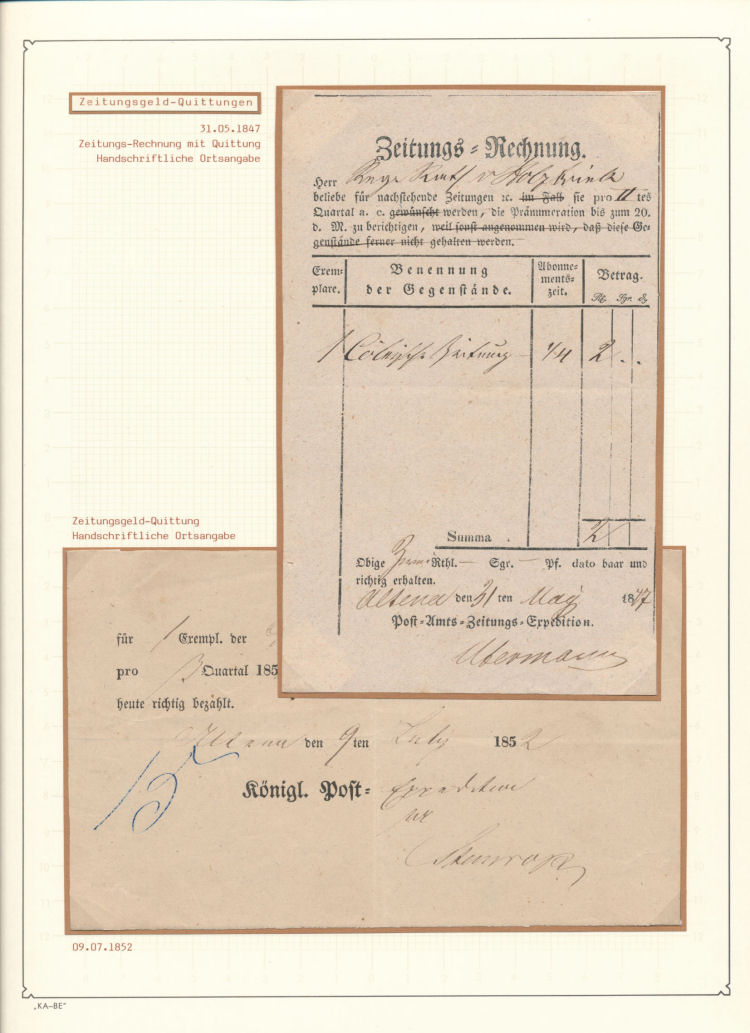 Zeitungsgeld-Quittungen
31.05.1847
Zeitungs-Rechnung mit Quittung
Handschriftliche Ortsangabe
Zeitungs-Rechnung.
Herr
beliebe für nachstehende Zeitungen ꝛc. im Fall sie pro II tes
Quartal a. c. gewünscht werden, die Pränumeration bis zum 20.
d. M. zu berichtigen, weil sonst angenommen wird, daß diese Ge-
genstände ferner nicht gehalten werden.
Exem-
plare.
Benennung
der Gegenstände.
Abonne-
ments-
zeit.
Betrag.
Rt. Sgr. ₰
1 Cölnische Zeitung 1/4 2 . .
Summa . 2
Obige Zwei Rthl. — Sgr. — Pf. dato baar und
richtig erhalten.
Altena den 31 ten May 1847
Post-Amts-Zeitungs-Expedition.
Utermann
Zeitungsgeld-Quittung
Handschriftliche Ortsangabe
für 1 Exempl. der
pro 3 Quartal 185
heute richtig bezahlt.
Altena den 9ten July 1852
15
Königl. Post-Expedition
09.07.1852
„KA-BE“